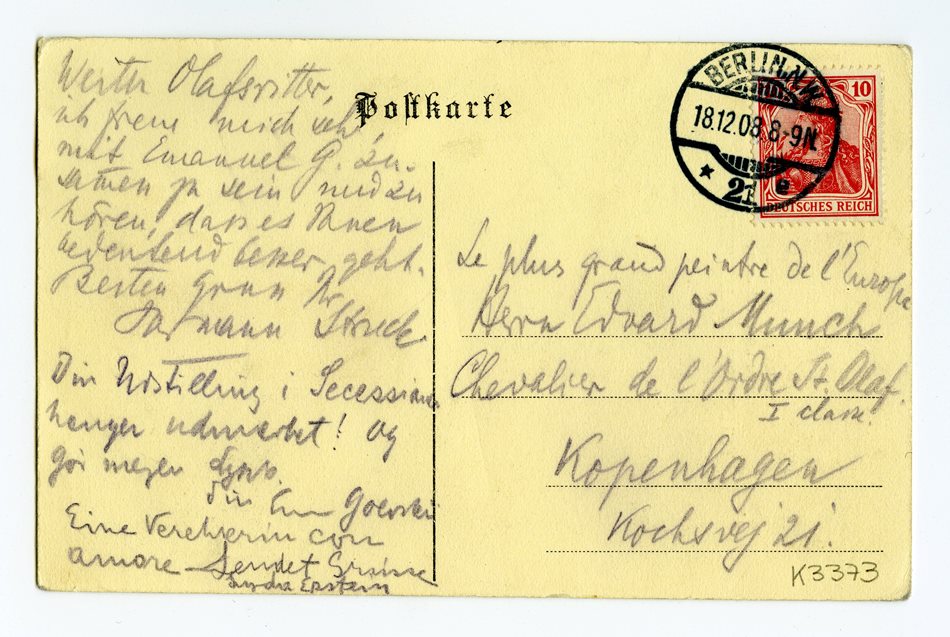 Werter Olafsritter,
ich freue mich sehr
mit Emanuel G. zu-
samen zu sein und zu
hören, dass es Ihnen
bedeutend besser geht.
Besten Gruss Ihr
Hermann Struck.
Din Udstilling i Secessionen
henger udmerket! og
gør megen Lykke.
din Em Goldstein
Eine Verehrerin con
amore sendet Grüsse
Epstein
Postkarte
BERLIN.N.W.
18.12.08.8-9N.
* 21 e
10
DEUTSCHES REICH
Le plus grand peintre de l'Europe
Herrn Edvard Munch
Chevalier de l'Ordre St. Olaf.
I class.
Kopenhagen
Kochsvej 21.
K3373